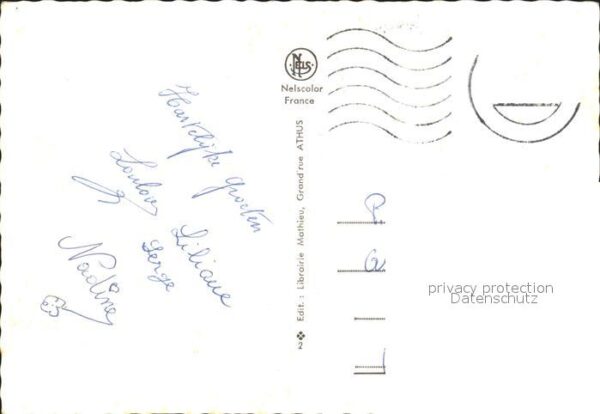 Hartelijke Groeten
Loulou
Liliane
Serge
Nadine
NELS
Nelscolor
France
2 Edit.: Librairie Mathieu, Grand'rue ATHUS
privacy protection
Datenschutz